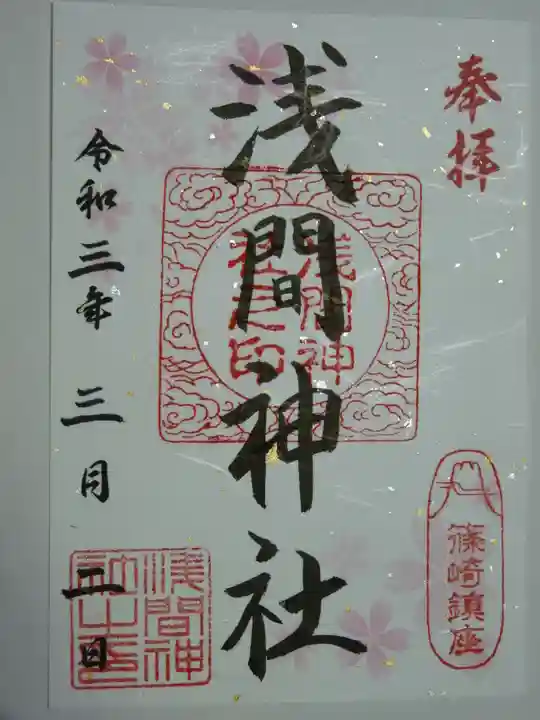 奉拝
浅間神社
浅間神
社之印
篠崎鎮座
令和三年三月二日
浅間神